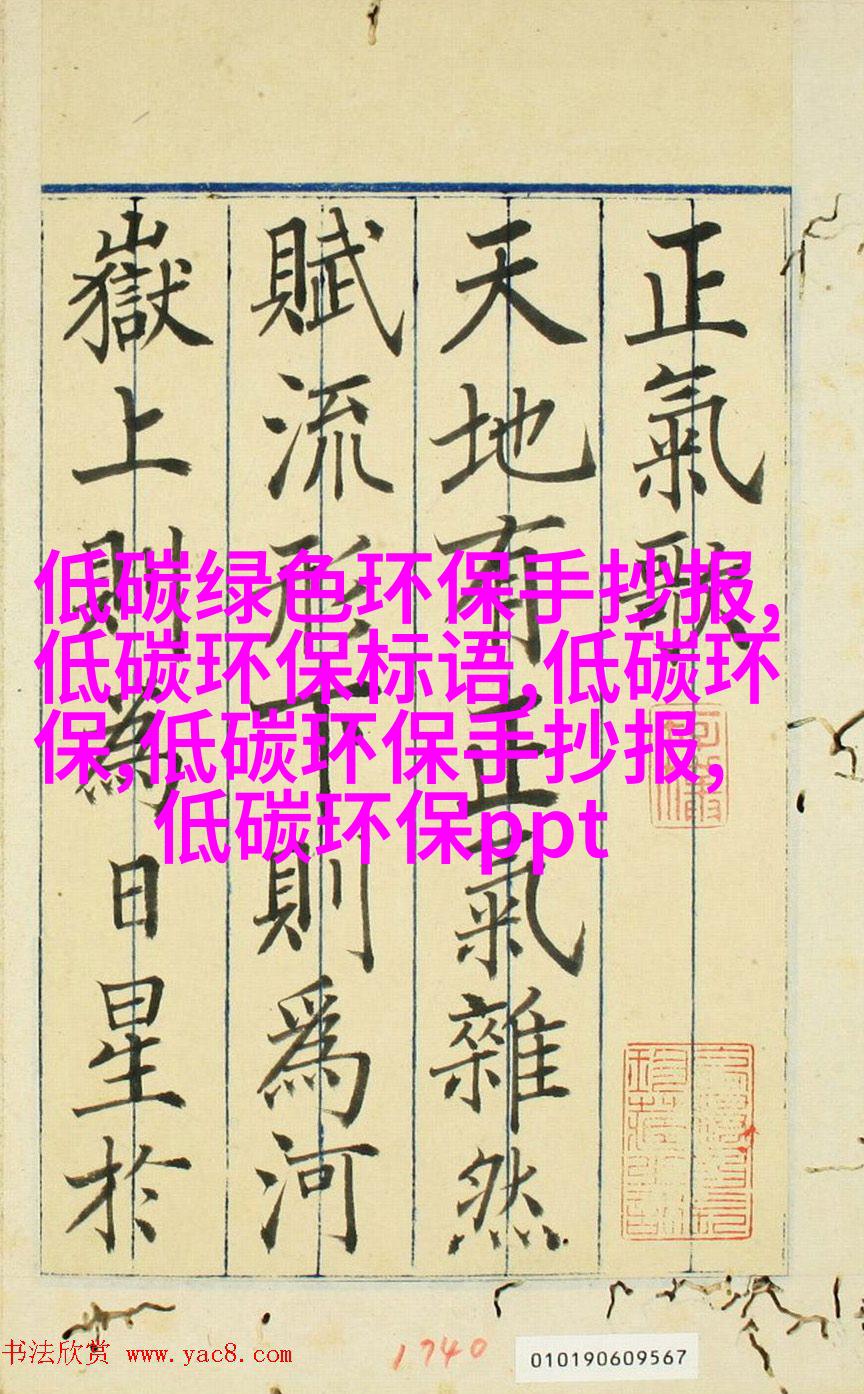 正氣歌
天地有正氣雜然
賦流形下則為河
嶽上則為日星於
低碳绿色环保手抄报,
低碳环保标语,低碳环
保,低碳环保手抄报,
低碳环保ppt
书法欣赏 www.yac8.com
1740
010190609567